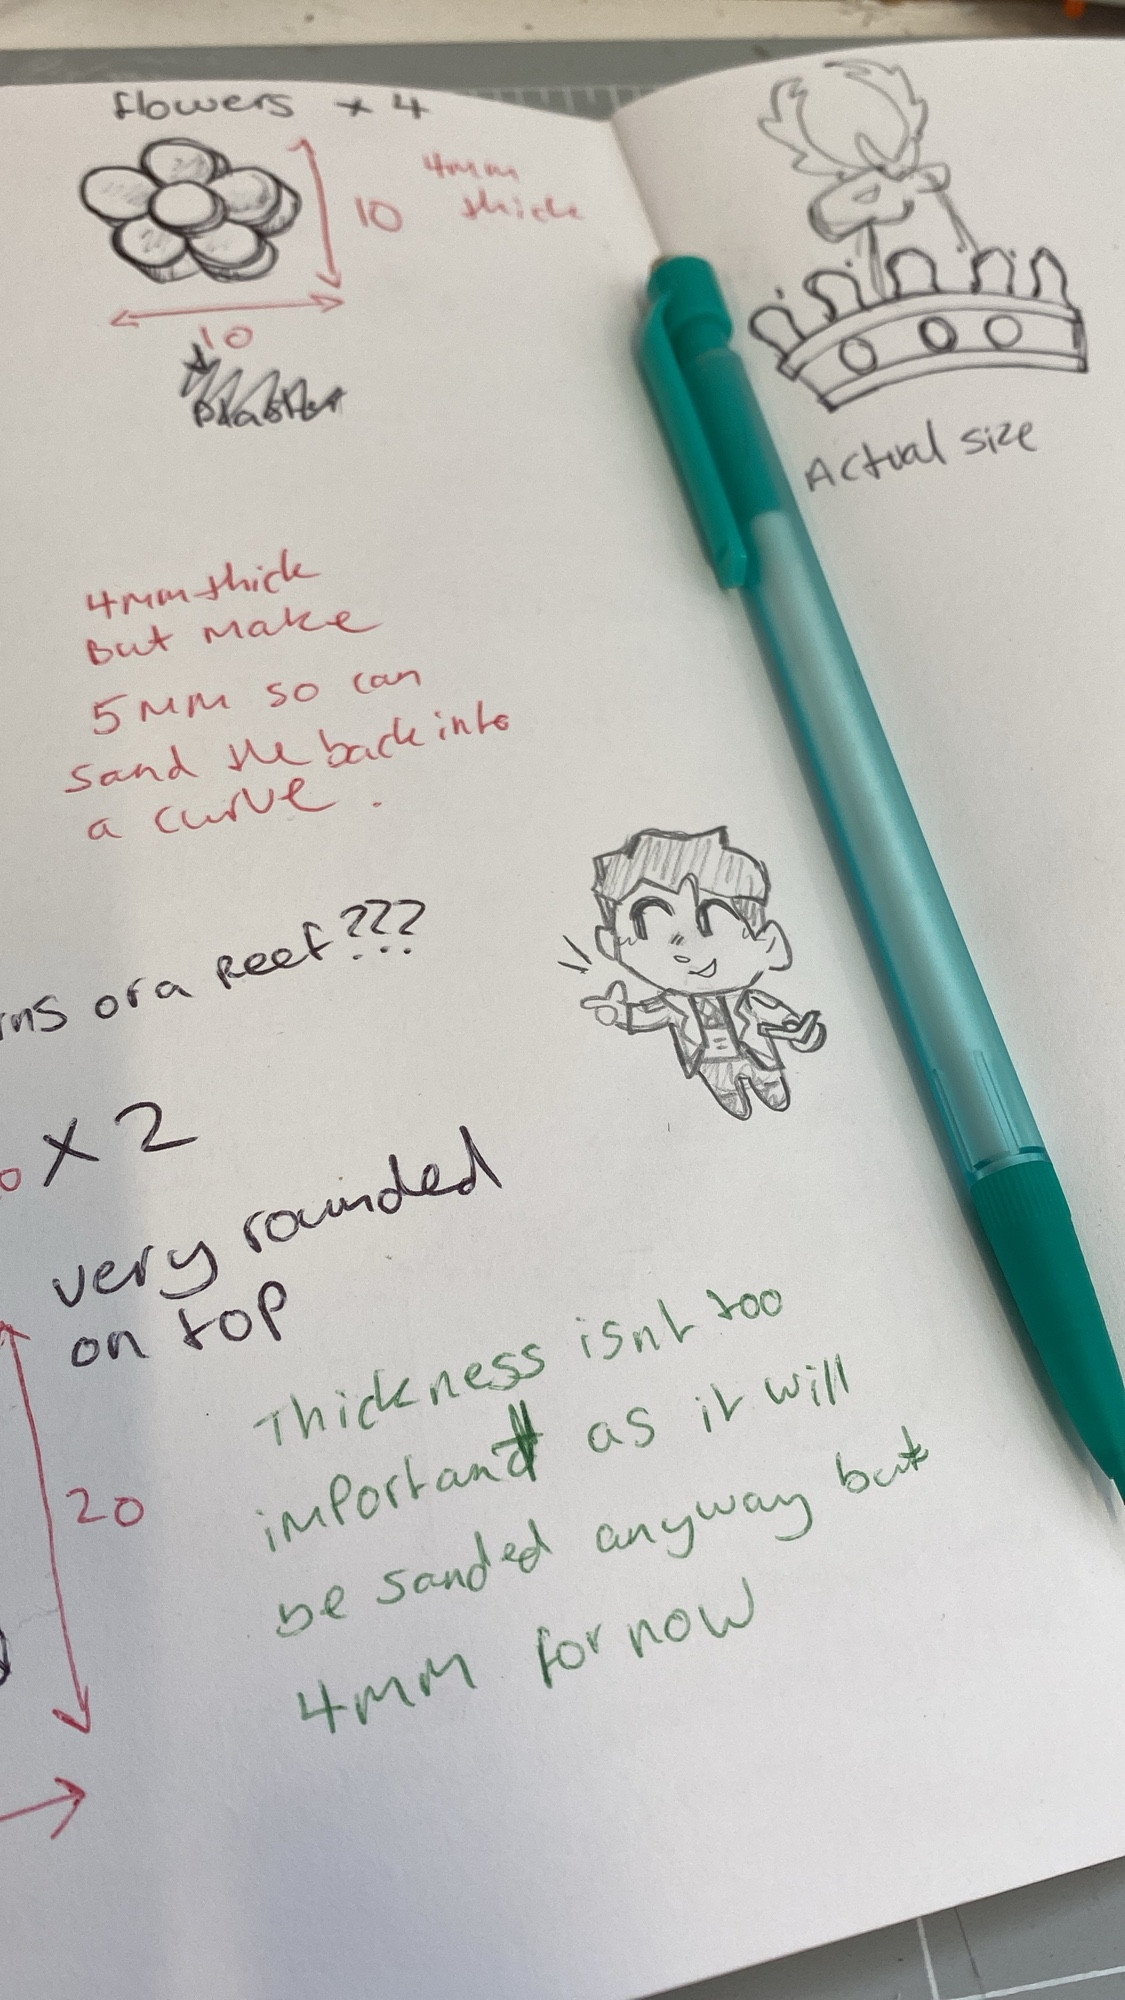 flowers x 4
4mm
thick
10
10
Actual size
4mm thick
But make
5mm so can
sand the back into
a curve.
or a Reef???
x 2
very rounded
on top
20
Thickness isnt too
important as it will
be sanded anyway but
4mm for now